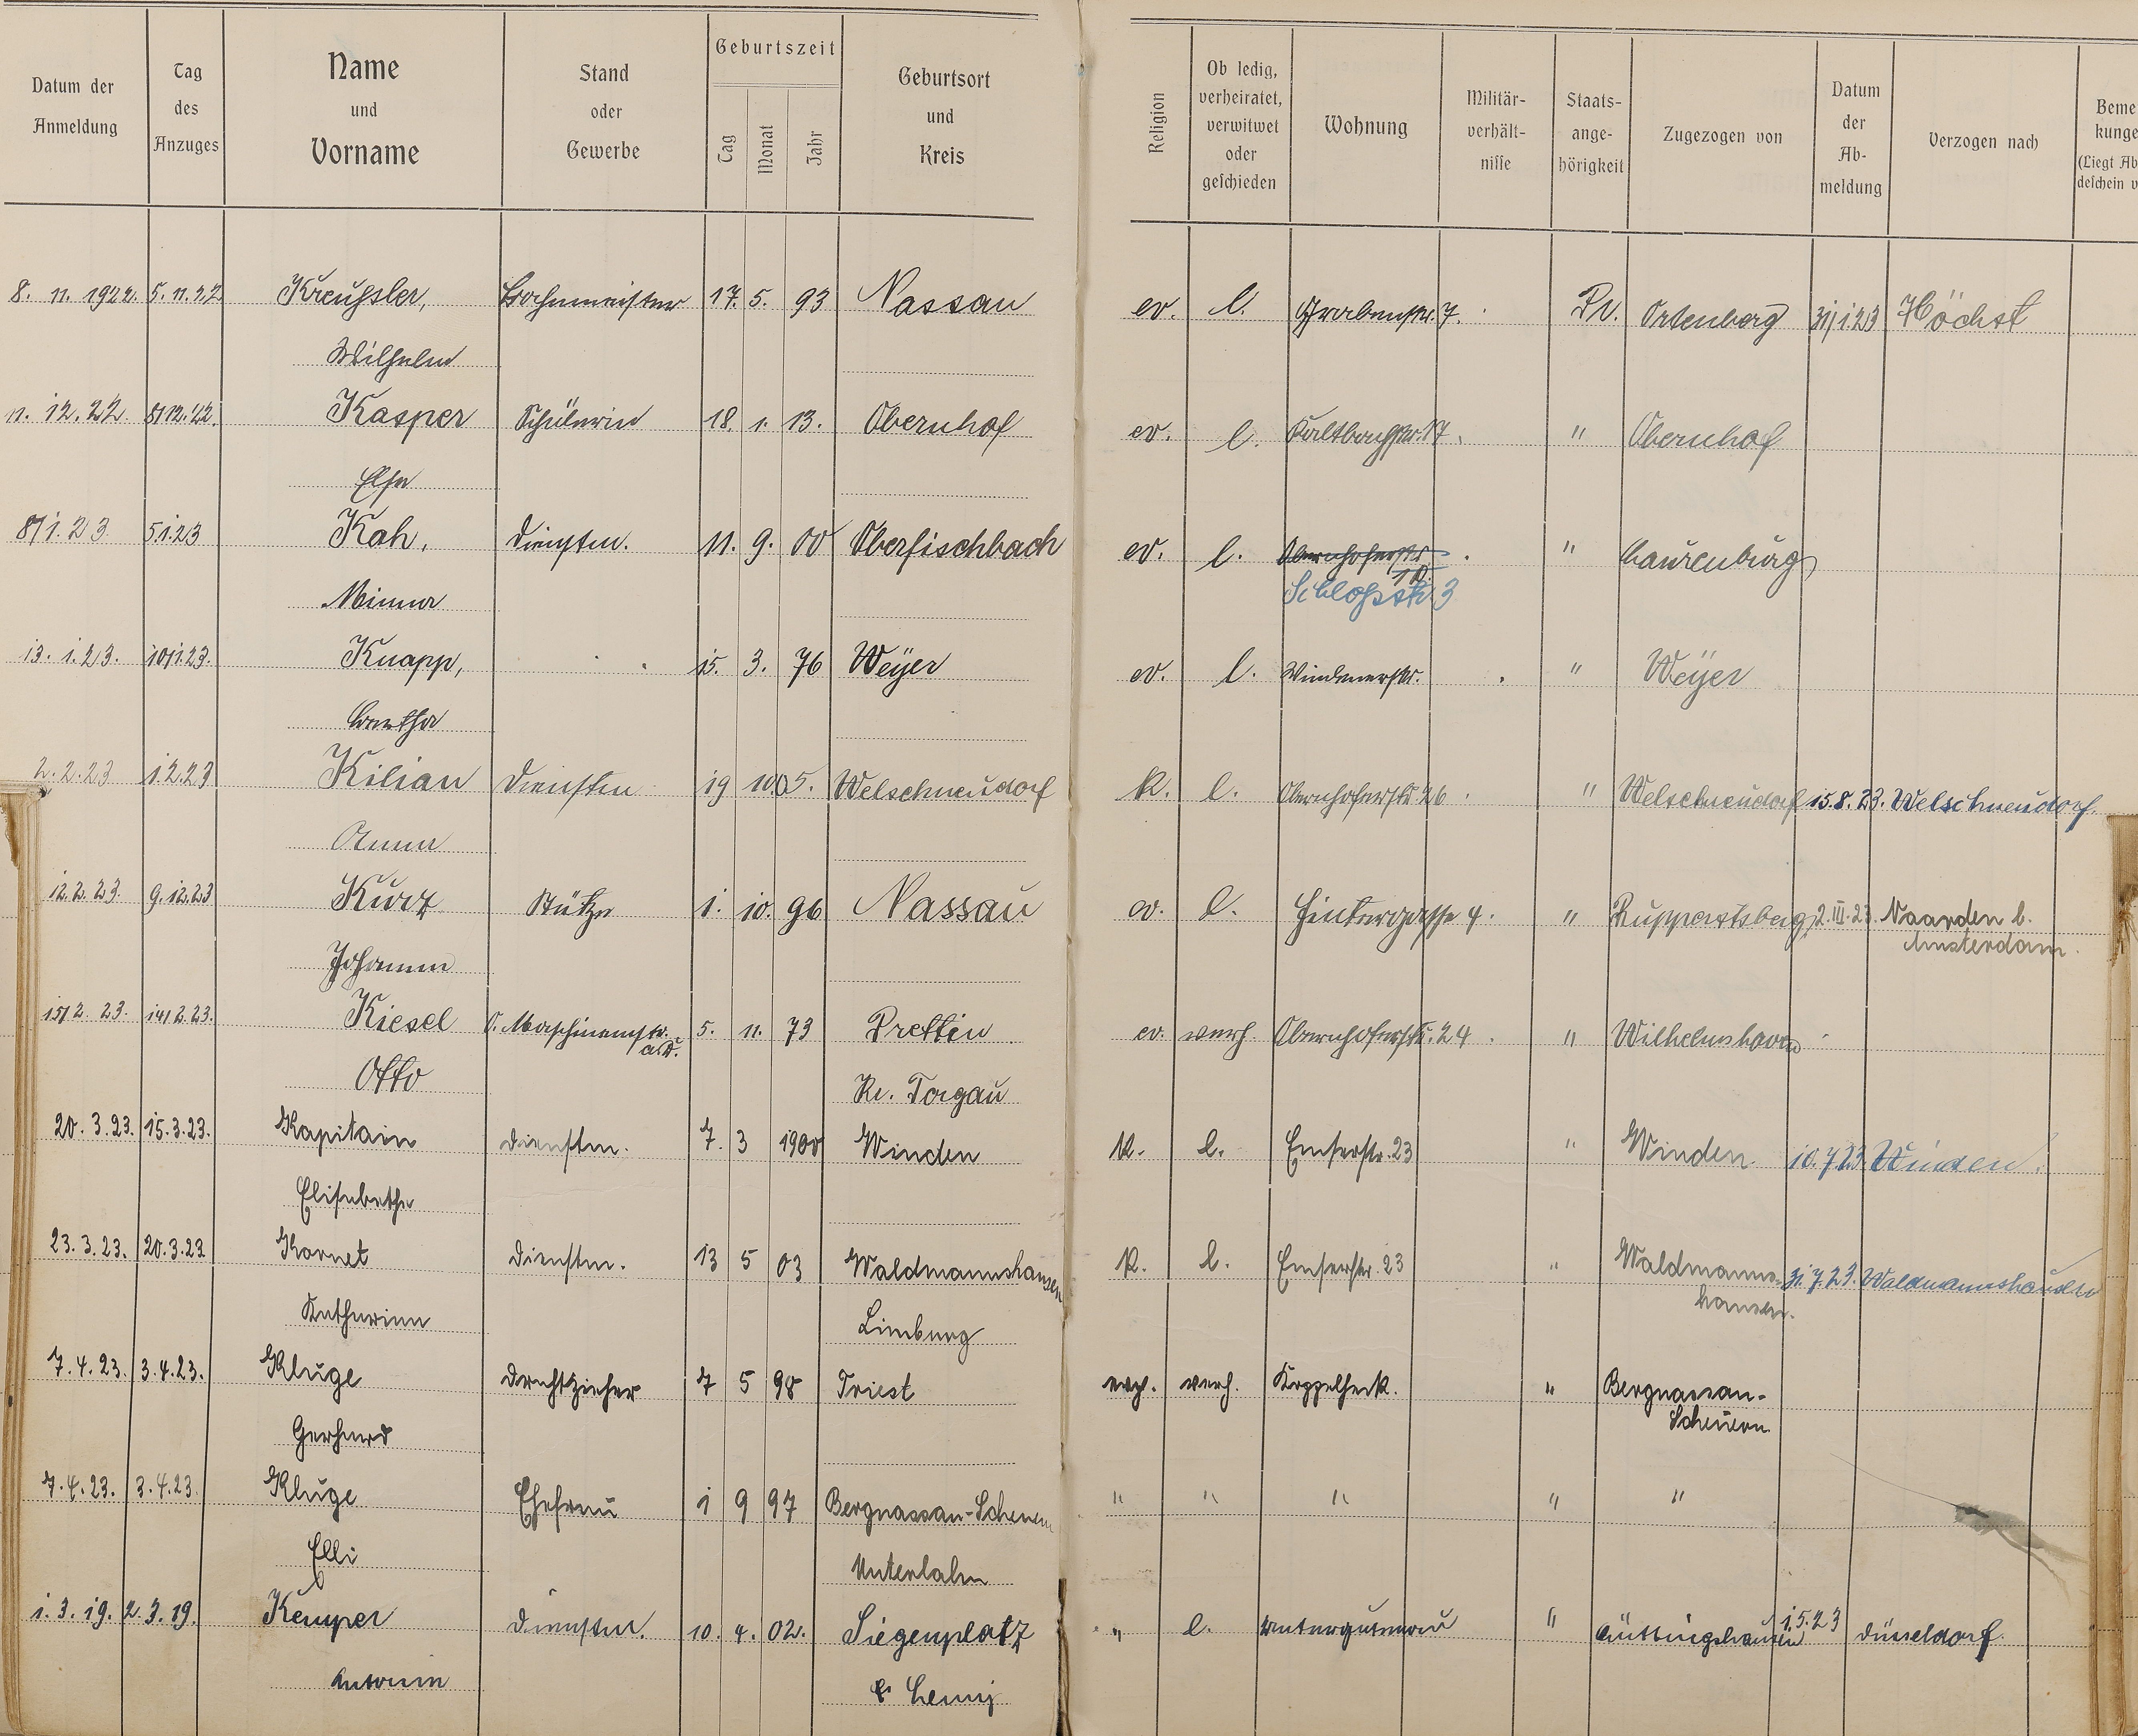 Datum der Anmeldung | Tag des Anzuges | Name und Vorname | Stand oder Gewerbe | Geburtszeit Tag Monat Jahr | Geburtsort und Kreis | Religion | Ob ledig, verheiratet, verwitwet oder geschieden | Wohnung | Militär-verhält-nisse | Staats-ange-hörigkeit | Zugezogen von | Datum der Ab-meldung | Verzogen nach | Beme kunge (Liegt Ab deschein v
8. 11. 1922. 5. 11. 22 Kreußler, 17. 5. 93 Nassau ev. l. Grabenstr. 7. Pr. Ortenberg 31/1.23 Höchst
Wilhelm
11. 12. 22. 8/12.'22. Kasper Schülerin 18. 1. 13. Obernhof ev. l. Kaltbachstr. 17. " Obernhof
Else
8/1. 23 5.1.23 Kah, Dienstm. 11. 9. 00 Oberfischbach ev. l. Obernhoferstr. " Laurenburg
Minna Schloßstr. 3
13. 1. 23. 10/1.23. Knapp, 15. 3. 76 Weÿer ev. l. Windenerstr. " Weÿer
2. 2. 23 1.2.23 Kilian Dienstm 19 10. 05. Welschneudorf K. l. Obernhoferstr. 26 " Welschneudorf 15. 8. 23. Welschneudorf.
Anna
12. 2. 23. 9. 12.23 Kurz Stütze 1. 10. 96 Nassau ev. l. Hintergasse 4. " Ruppertsberg 2. III. 23. Naarden b.
Johanna Amsterdam.
15/2. 23. 14/2.23. Kiesel O. Maschinenmstr. 5. 11. 73 Prettin ev. verh. Obernhoferstr. 24 " Wilhelmshaven
a.D.
Otto Kr. Torgau
20. 3. 23. 15. 3. 23. Kapitain Dienstm. 7. 3 1900 Winden K. l. Emserstr. 23 " Winden 10. 7. 23. Winden.
Elisabethe
23. 3. 23. 20. 3. 23 Kornet Dienstm. 13 5 03 Waldmannshausen K. l. Emserstr. 23 " Waldmanns- 31. 7. 23. Waldmannshausen
Katharina Limburg hausen.
7. 4. 23. 3. 4. 23. Kluge Drahtzieher 7 5 98 Triest evgl. verh. Koppelheck. " Bergnassau-
Gerhard Scheuern
7. 4. 23. 3. 4. 23. Kluge Ehefrau 1 9 97 Bergnassau-Scheuern " " " " "
Elli Unterlahn
1. 3. 19. 2. 3. 19. Kemper Dienstm. 10. 4. 02. Siegenplatz " l. " 1. 5. 23 Düsseldorf.